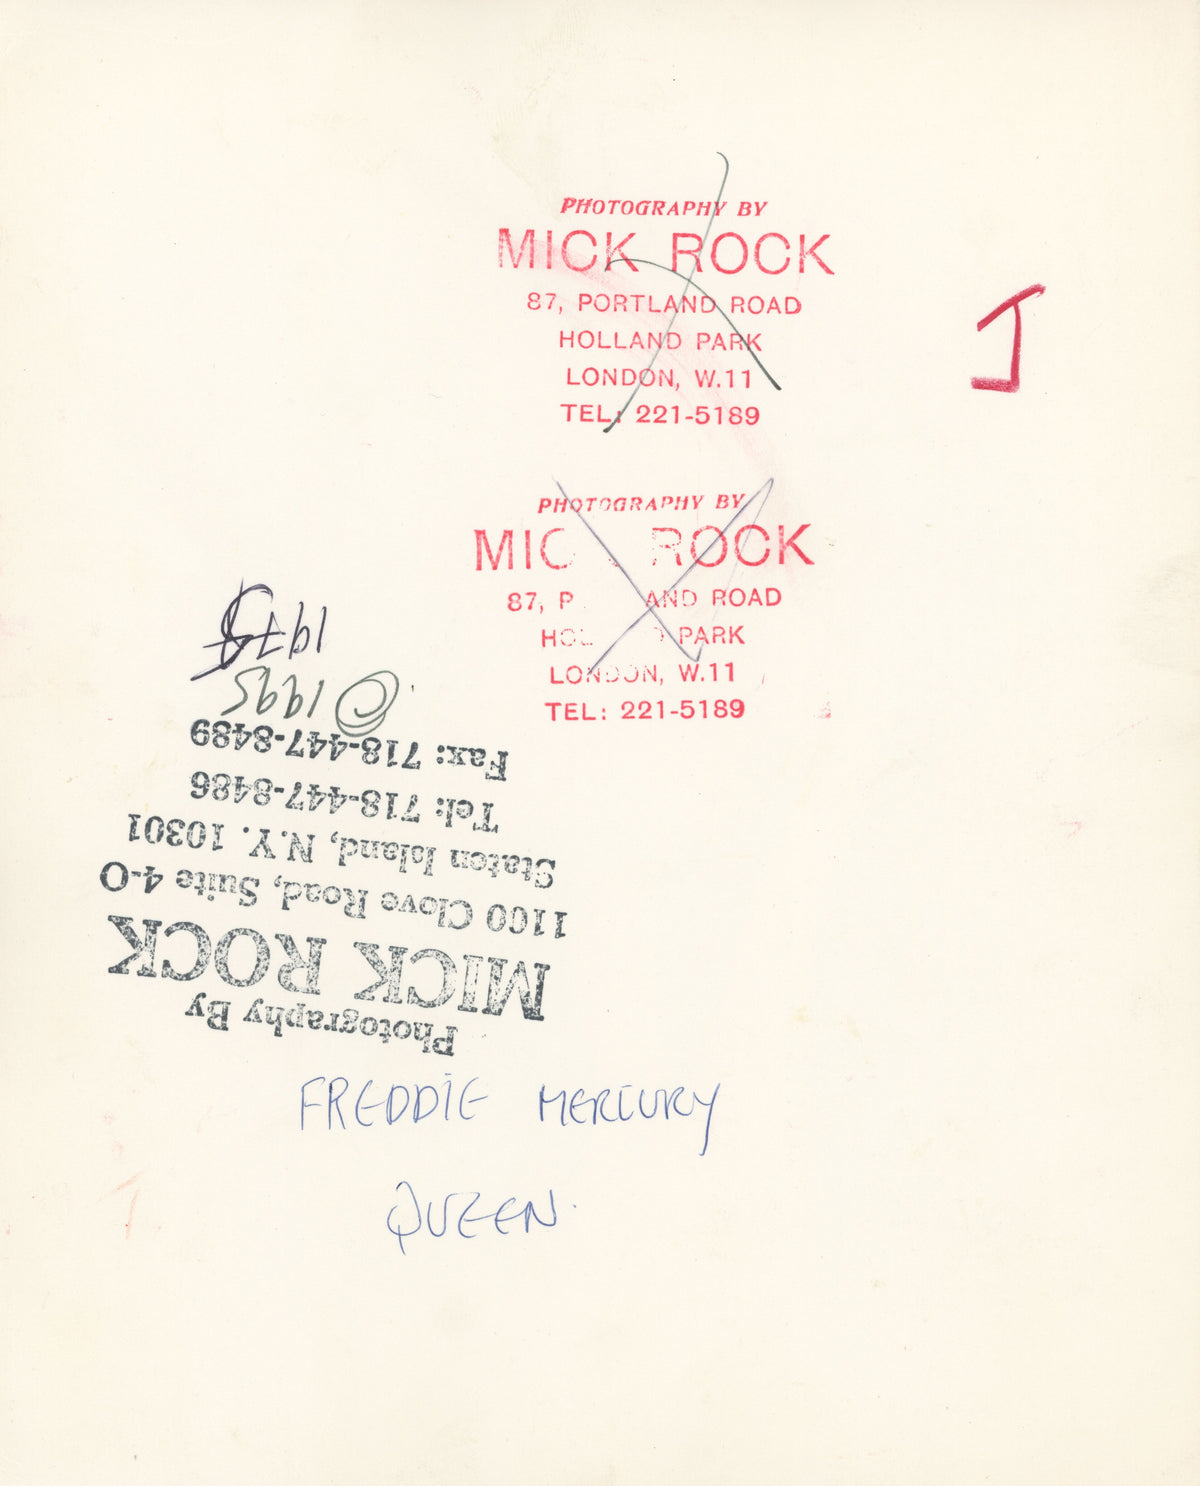 PHOTOGRAPHY BY
MICK ROCK
87, PORTLAND ROAD
HOLLAND PARK
LONDON, W.11
TEL: 221-5189
PHOTOGRAPHY BY
MIC ROCK
87, P AND ROAD
HOL PARK
LONDON, W.11
TEL: 221-5189
Photography By
MICK ROCK
1100 Clove Road, Suite 4-O
Staten Island, N.Y. 10301
Tel: 718-447-8486
Fax: 718-447-8489
© 1995
FREDDIE MERCURY
QUEEN.